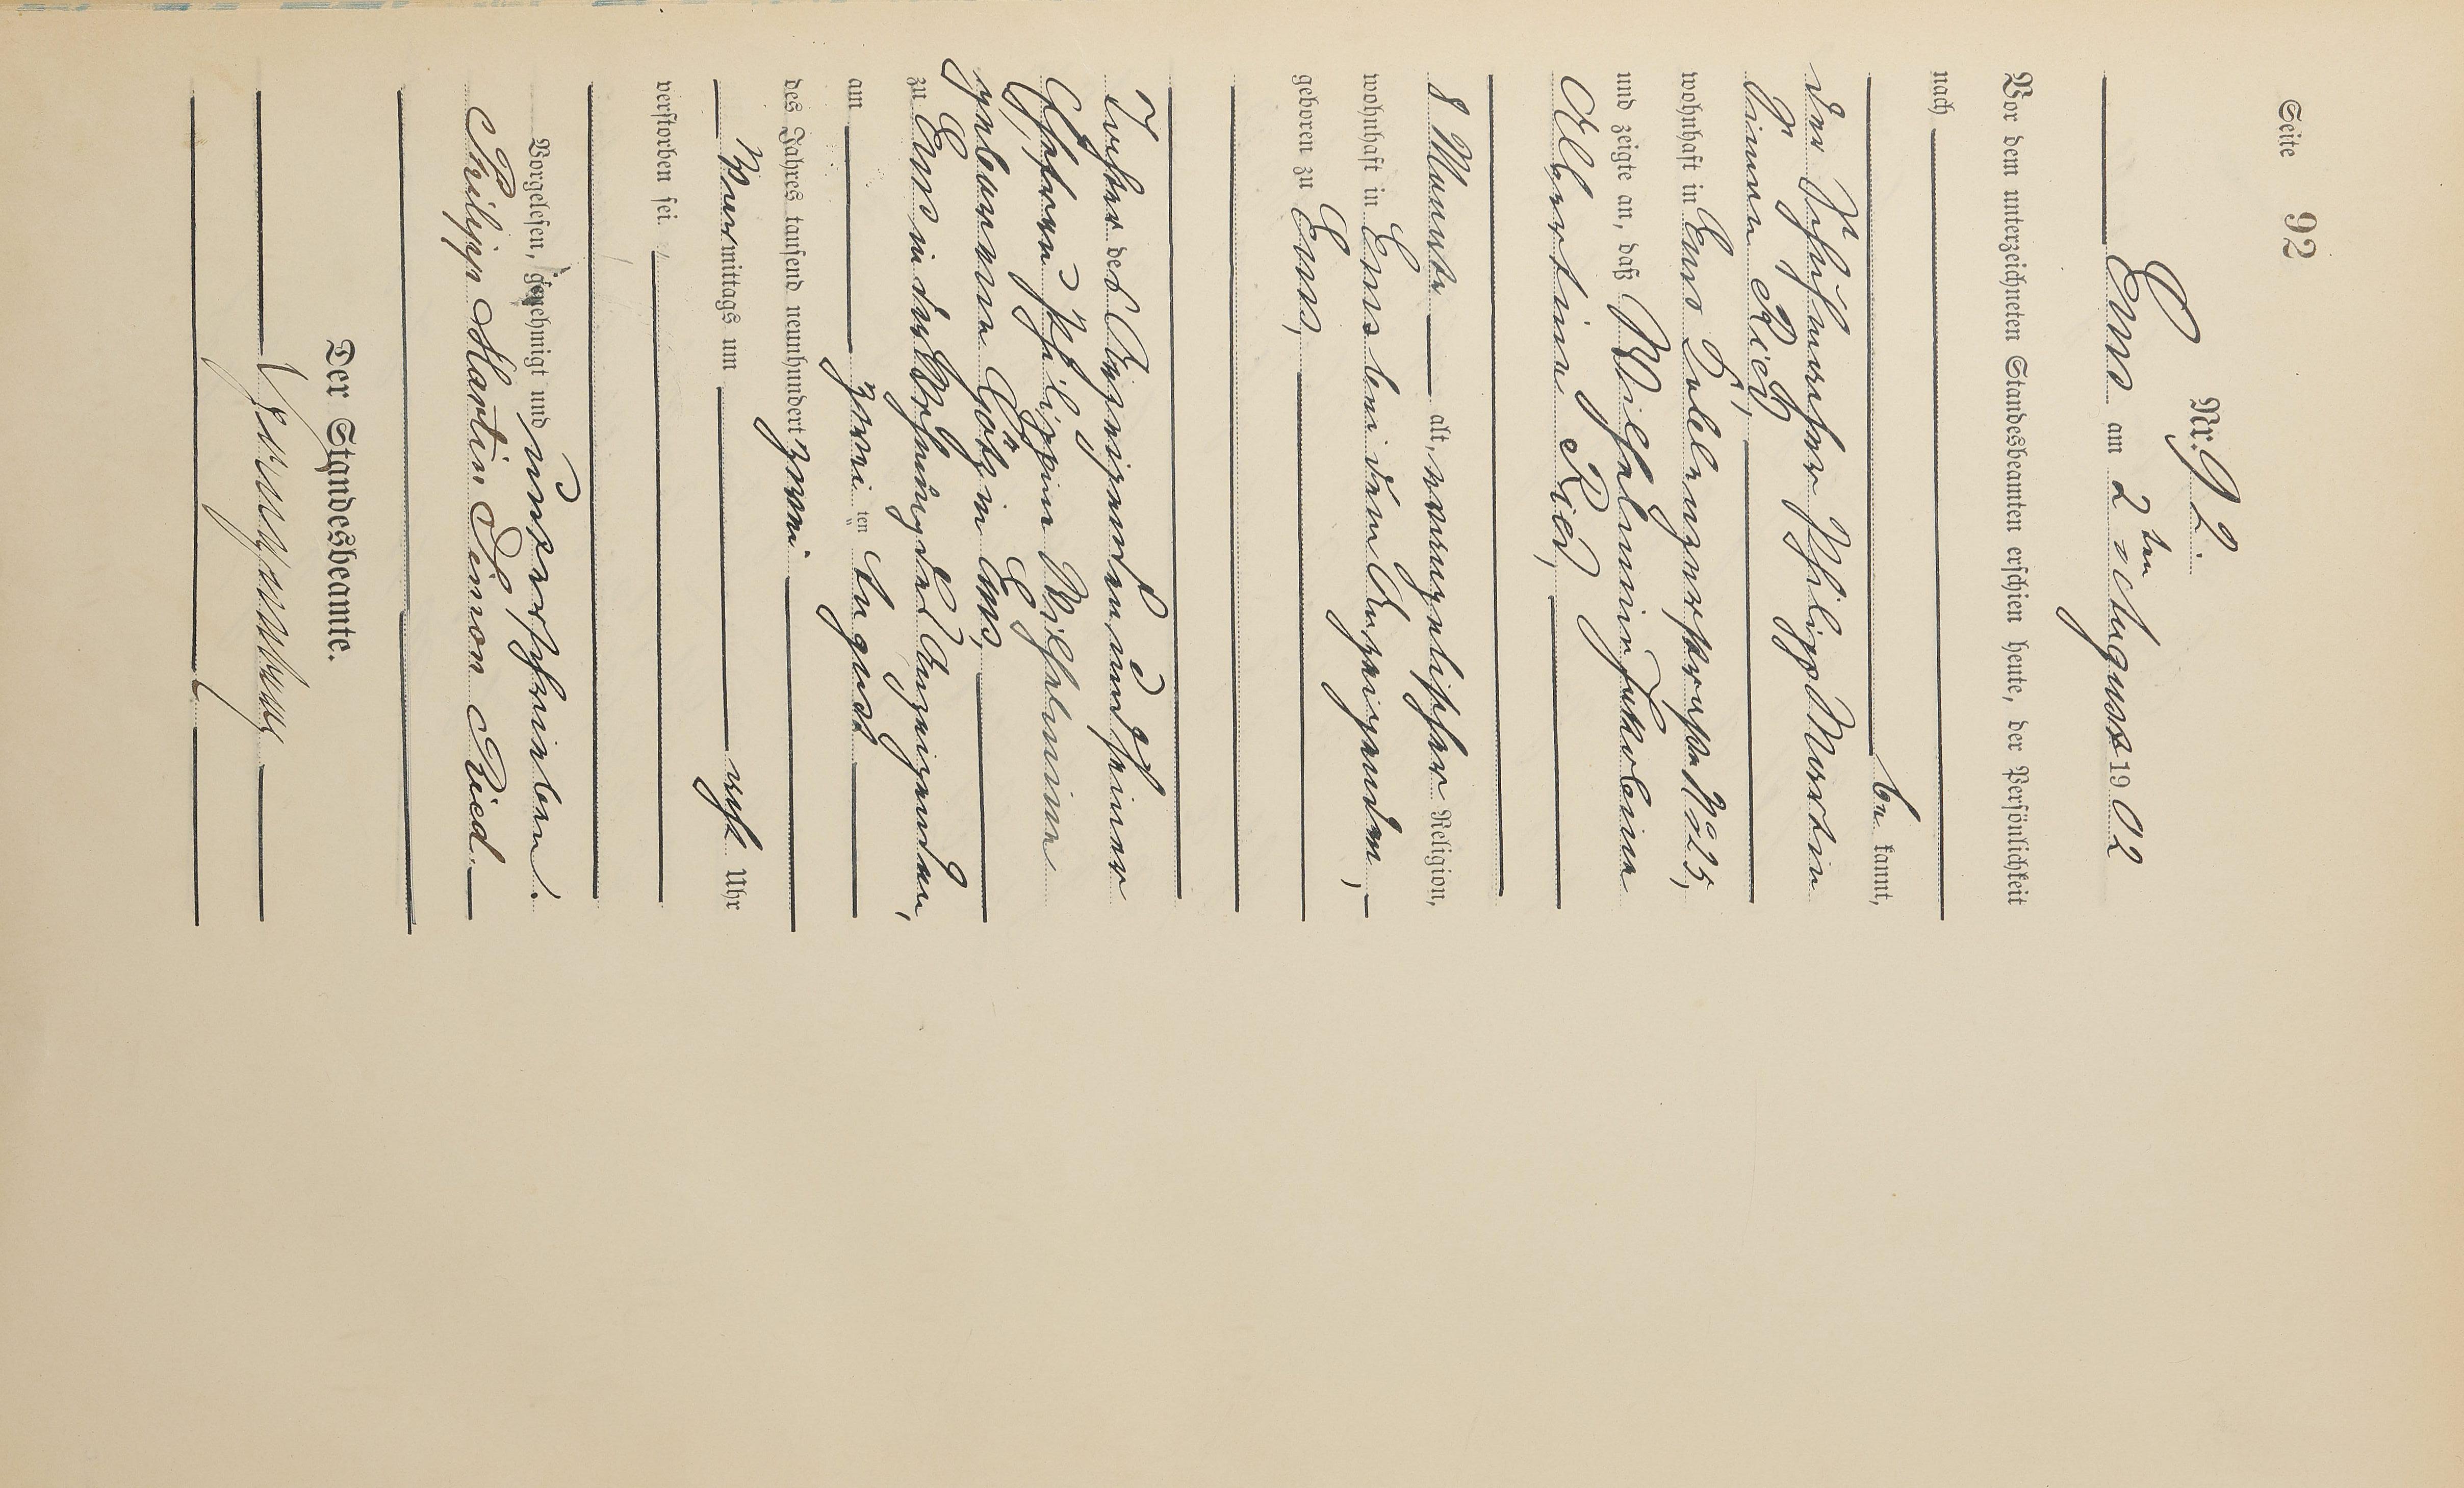 Seite 92
Nr. 92.
Ems am 2ten August 1902
Vor dem unterzeichneten Standesbeamten erschien heute, der Persönlichkeit
nach
be kannt,
der Schuhmacher Philipp Martin
Simon Ried,
wohnhaft in Ems, Coblenzerstraße No 25,
und zeigte an, daß Wilhelmine Karoline
Albertine Ried,
8 Monate alt, evangelischer Religion,
wohnhaft in Ems bei dem Anzeigenden,
geboren zu Ems,
Tochter des Anzeigenden und seiner
Ehefrau Philippine Wilhelmine
geborenen Götz in Ems,
zu Ems in der Wohnung des Anzeigenden,
am zweiten August
des Jahres tausend neunhundert zwei
Vormittags um acht Uhr
verstorben sei
Vorgelesen, genehmigt und unterschrieben.
Philipp Martin Simon Ried.
Der Standesbeamte.